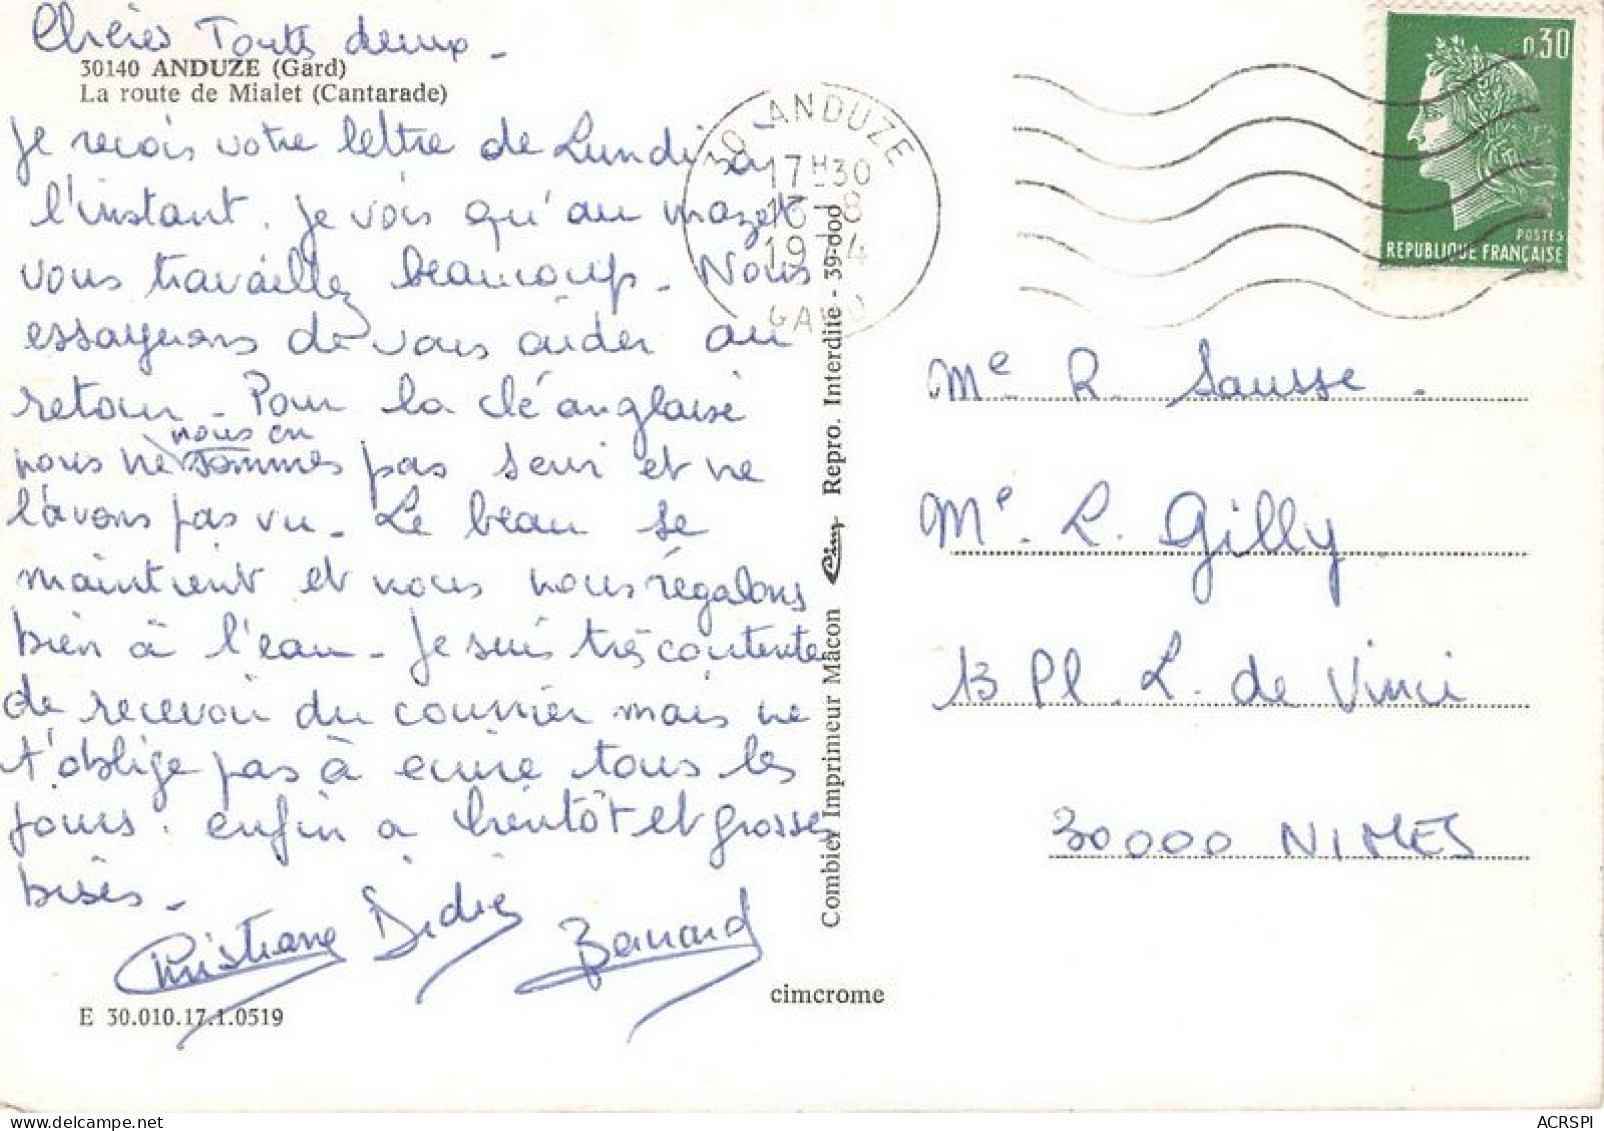 Chères Toutes deux -
30140 ANDUZE (Gard)
La route de Mialet (Cantarade)
Je reçois votre lettre de Lundi à
l'instant. Je vois qu'au mazet
vous travaillez beaucoup. Nous
essayerons de vous aider au
retour - Pour la clé anglaise
nous en
nous ne sommes pas servi et ne
l'avons pas vu - Le beau se
maintient et nous nous régalons
bien à l'eau - Je suis très contente
de recevoir du courrier mais ne
t'oblige pas à ecrire tous les
jours. enfin a bientôt et grosses
bises -
Christiane Didier Bernard
E 30.010.17.1.0519
cimcrome
Combier Imprimeur Mâcon Cim Repro. Interdite - 39-000
30 ANDUZE
17H30
16-8
1974
GARD
0,30
POSTES
REPUBLIQUE FRANÇAISE
Me R. Sausse -
Me. L. Gilly
13 Pl. L. de Vinci
30000 NIMES
ACRSPI